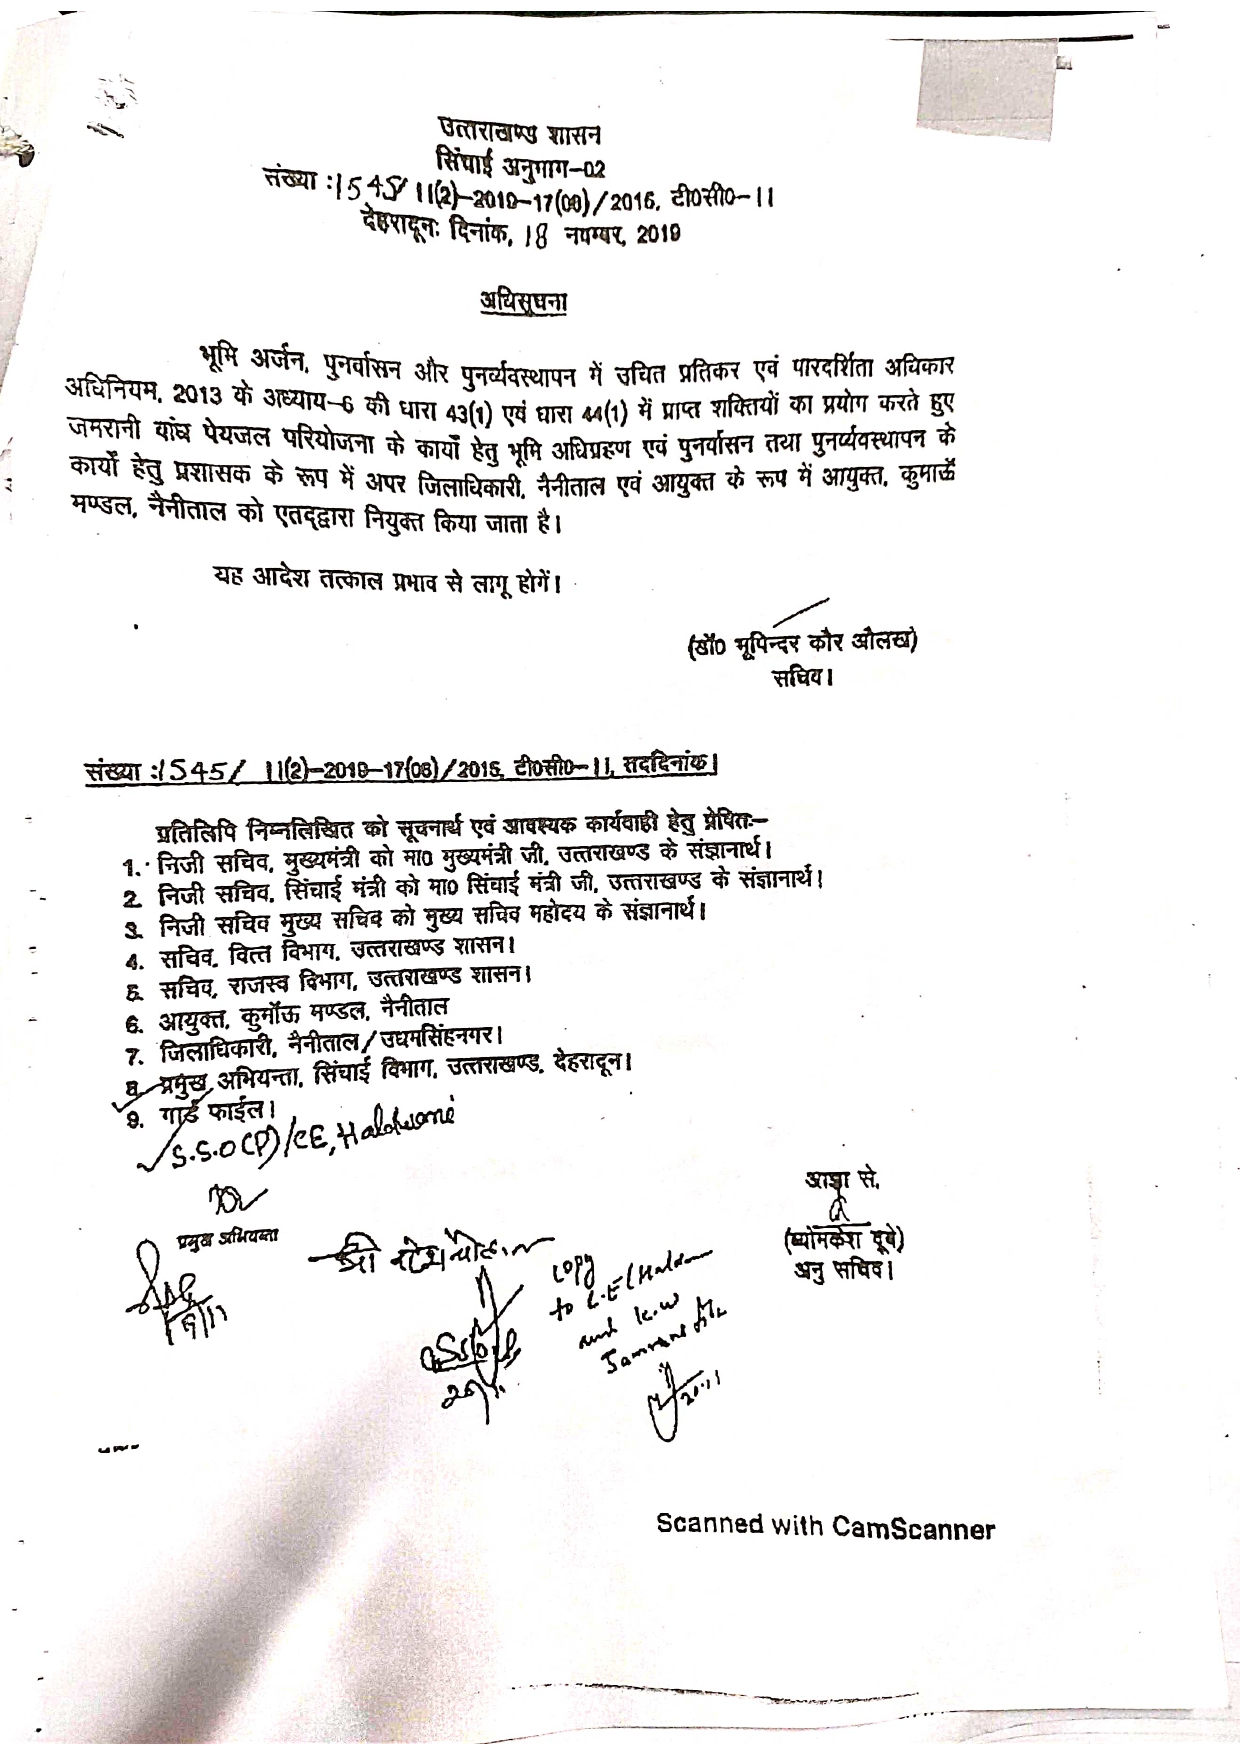 उत्तराखण्ड शासन
सिंचाई अनुभाग-02
संख्या :1545/ 11(2)-2019-17(08)/2016, टी0सी0-11
देहरादूनः दिनांक, 18 नवम्बर, 2019
अधिसूचना
भूमि अर्जन, पुनर्वासन और पुनर्व्यवस्थापन में उचित प्रतिकर एवं पारदर्शिता अधिकार
अधिनियम, 2013 के अध्याय-6 की धारा 43(1) एवं धारा 44(1) में प्राप्त शक्तियों का प्रयोग करते हुए
जमरानी बांध पेयजल परियोजना के कार्यों हेतु भूमि अधिग्रहण एवं पुनर्वासन तथा पुनर्व्यवस्थापन के
कार्यों हेतु प्रशासक के रूप में अपर जिलाधिकारी, नैनीताल एवं आयुक्त के रूप में आयुक्त, कुमाऊँ
मण्डल, नैनीताल को एतद्द्वारा नियुक्त किया जाता है।
यह आदेश तत्काल प्रभाव से लागू होगें।
(डॉ0 भूपिन्दर कौर औलख)
सचिव।
संख्या :1545/ 11(2)-2019-17(08)/2016, टी0सी0-11, तददिनांक।
प्रतिलिपि निम्नलिखित को सूचनार्थ एवं आवश्यक कार्यवाही हेतु प्रेषितः-
1. निजी सचिव, मुख्यमंत्री को मा0 मुख्यमंत्री जी, उत्तराखण्ड के संज्ञानार्थ।
2. निजी सचिव, सिंचाई मंत्री को मा0 सिंचाई मंत्री जी, उत्तराखण्ड के संज्ञानार्थ।
3. निजी सचिव मुख्य सचिव को मुख्य सचिव महोदय के संज्ञानार्थ।
4. सचिव, वित्त विभाग, उत्तराखण्ड शासन।
5. सचिव, राजस्व विभाग, उत्तराखण्ड शासन।
6. आयुक्त, कुमॉऊ मण्डल, नैनीताल
7. जिलाधिकारी, नैनीताल/उधमसिंहनगर।
8. प्रमुख अभियन्ता, सिंचाई विभाग, उत्तराखण्ड, देहरादून।
9. गार्ड फाईल।
S.S.O(P)/CE, Haldwani
आज्ञा से,
प्रमुख अभियन्ता
(व्योमकेश दूबे)
अनु सचिव।
श्री
copy
to
and
20.11
Scanned with CamScanner